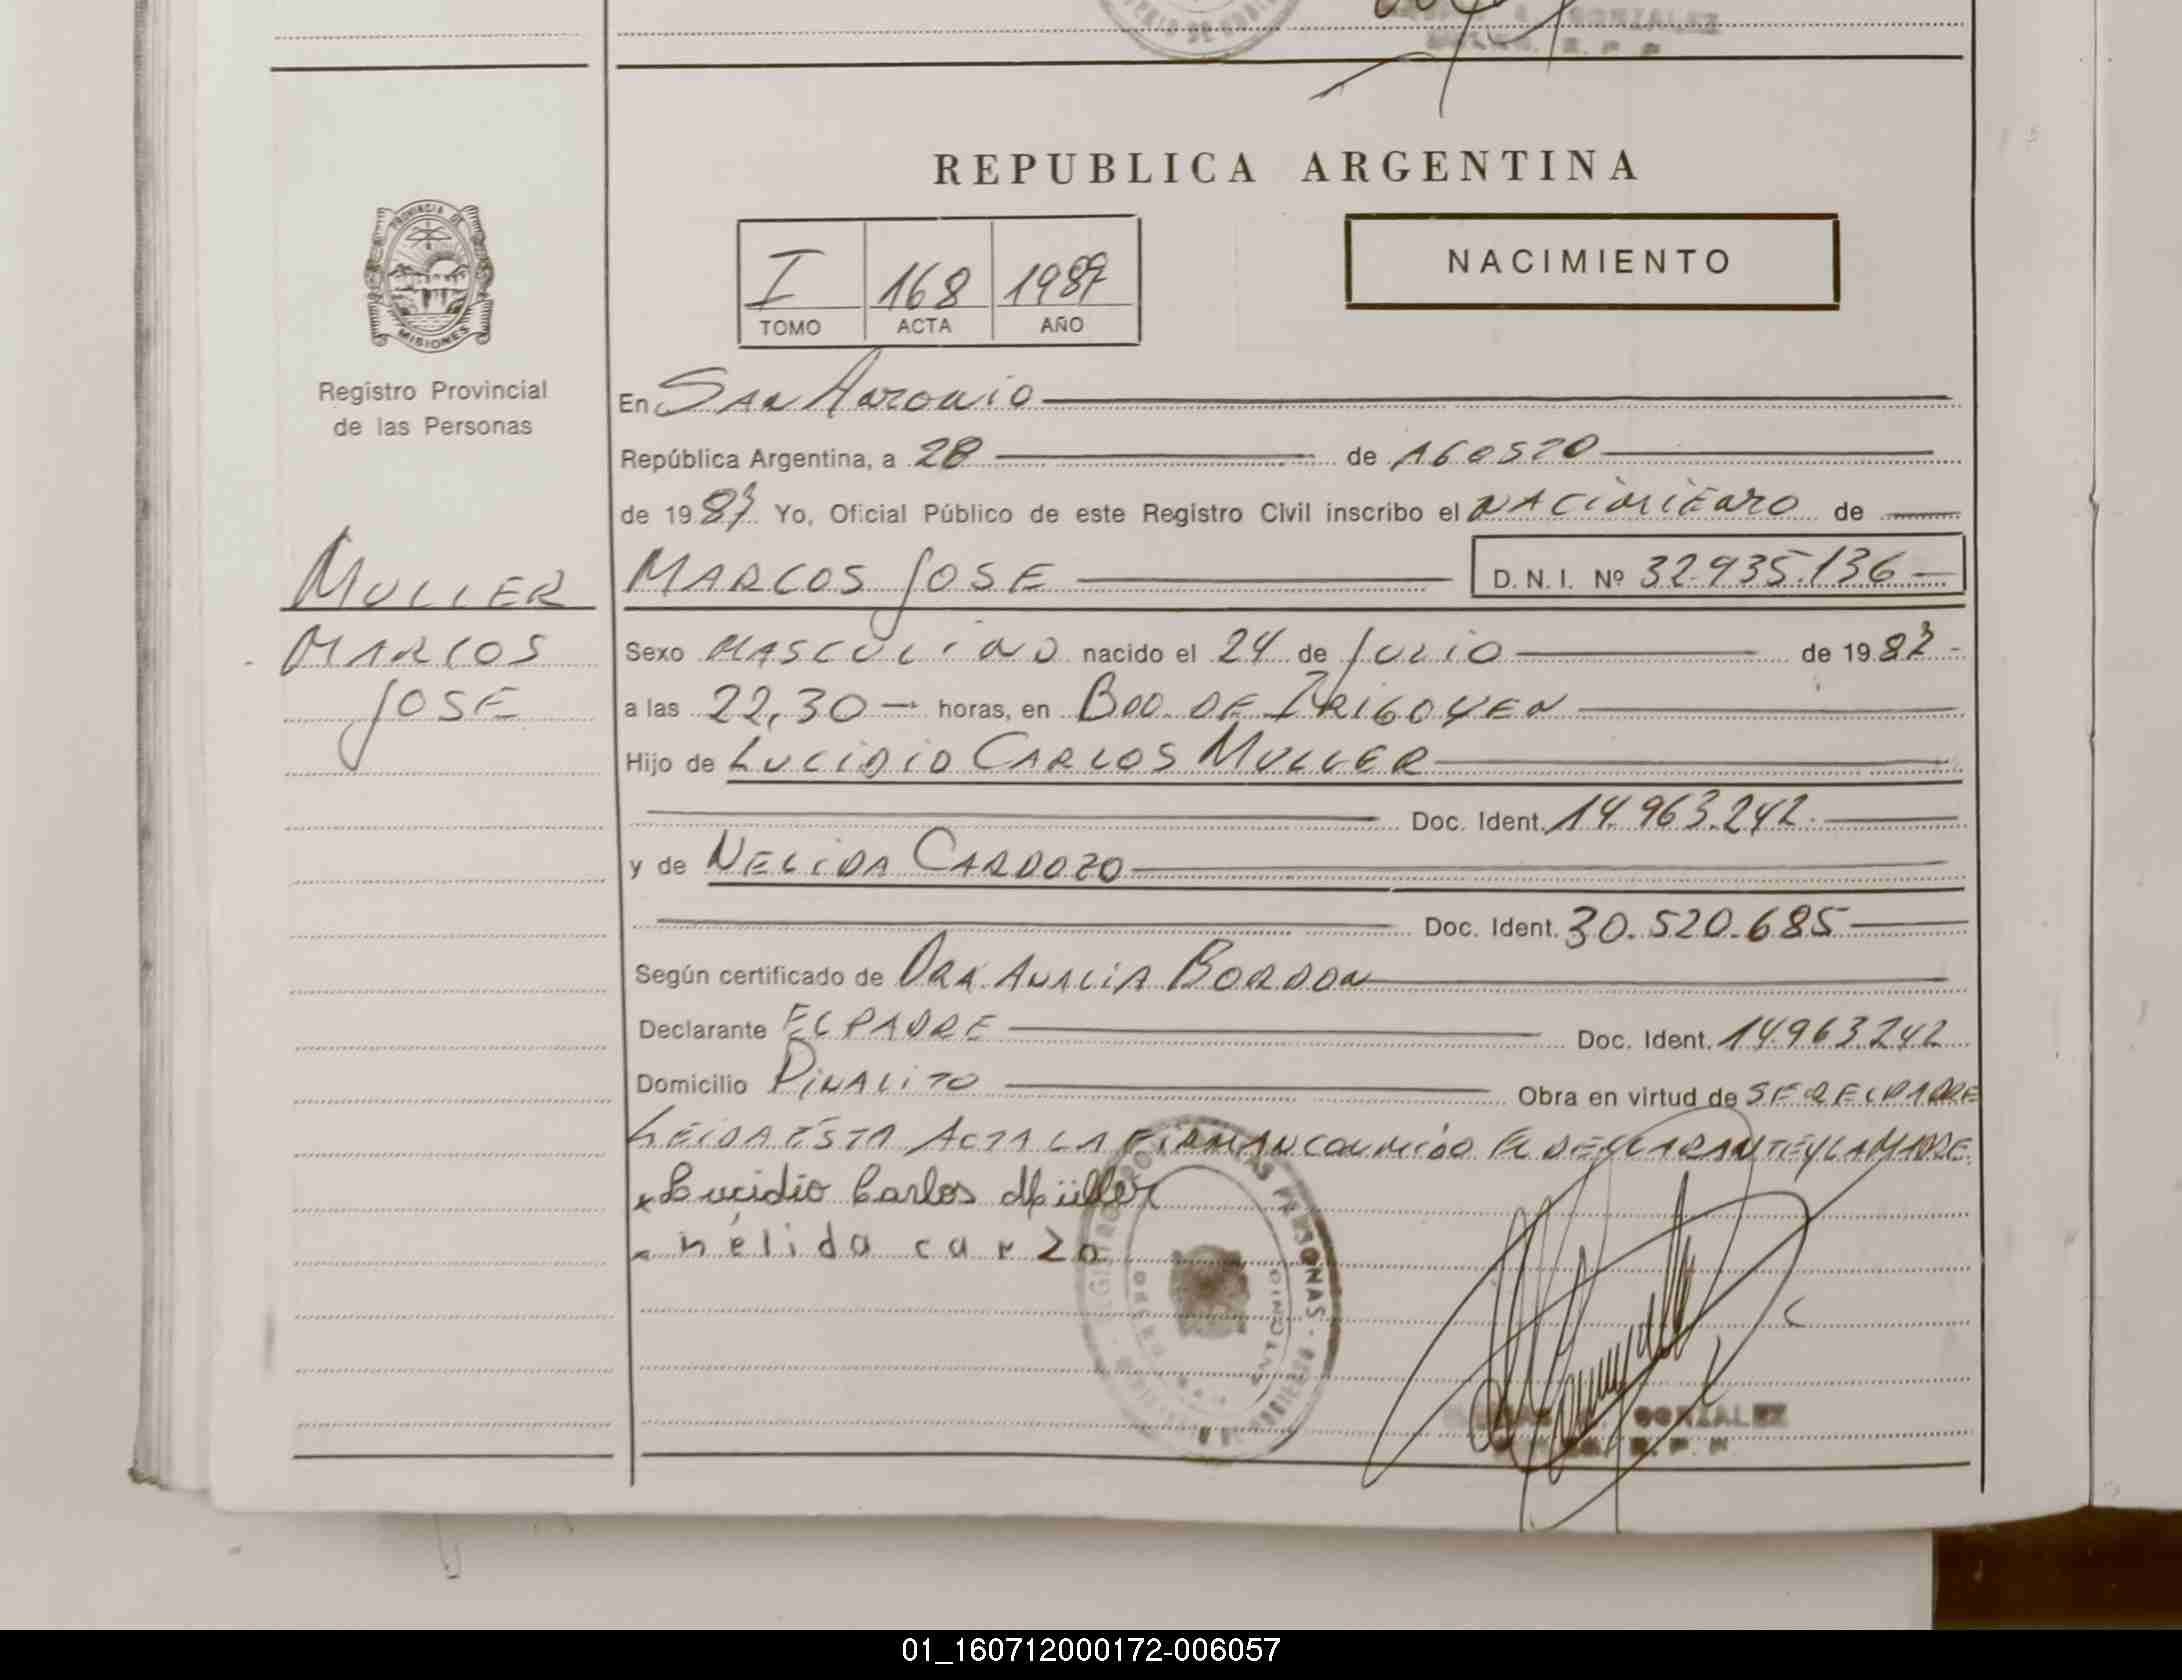 REPUBLICA ARGENTINA
NACIMIENTO
I 168 1987
TOMO ACTA AÑO
PROVINCIA DE
MISIONES
Registro Provincial
de las Personas
MULLER
MARCOS
JOSE
En SAN ANTONIO
República Argentina, a 28 de AGOSTO
de 1987 Yo, Oficial Público de este Registro Civil inscribo el NACIMIENTO de
MARCOS JOSE D.N.I. Nº 32.935.136
Sexo MASCULINO nacido el 24 de JULIO de 1987
a las 22,30 horas, en BDO. DE IRIGOYEN
Hijo de LUCIDIO CARLOS MULLER
Doc. Ident. 14.963.242
y de NELIDA CARDOZO
Doc. Ident. 30.520.685
Según certificado de DRA. ANALIA BORDON
Declarante EL PADRE Doc. Ident. 14.963.242
Domicilio PIÑALITO Obra en virtud de SER EL PADRE
LEIDA ESTA ACTA LA FIRMAN CONMIGO EL DECLARANTE Y LA MADRE
x Lucidio Carlos Müller
x nélida carzo
GONZALEZ
01_160712000172-006057